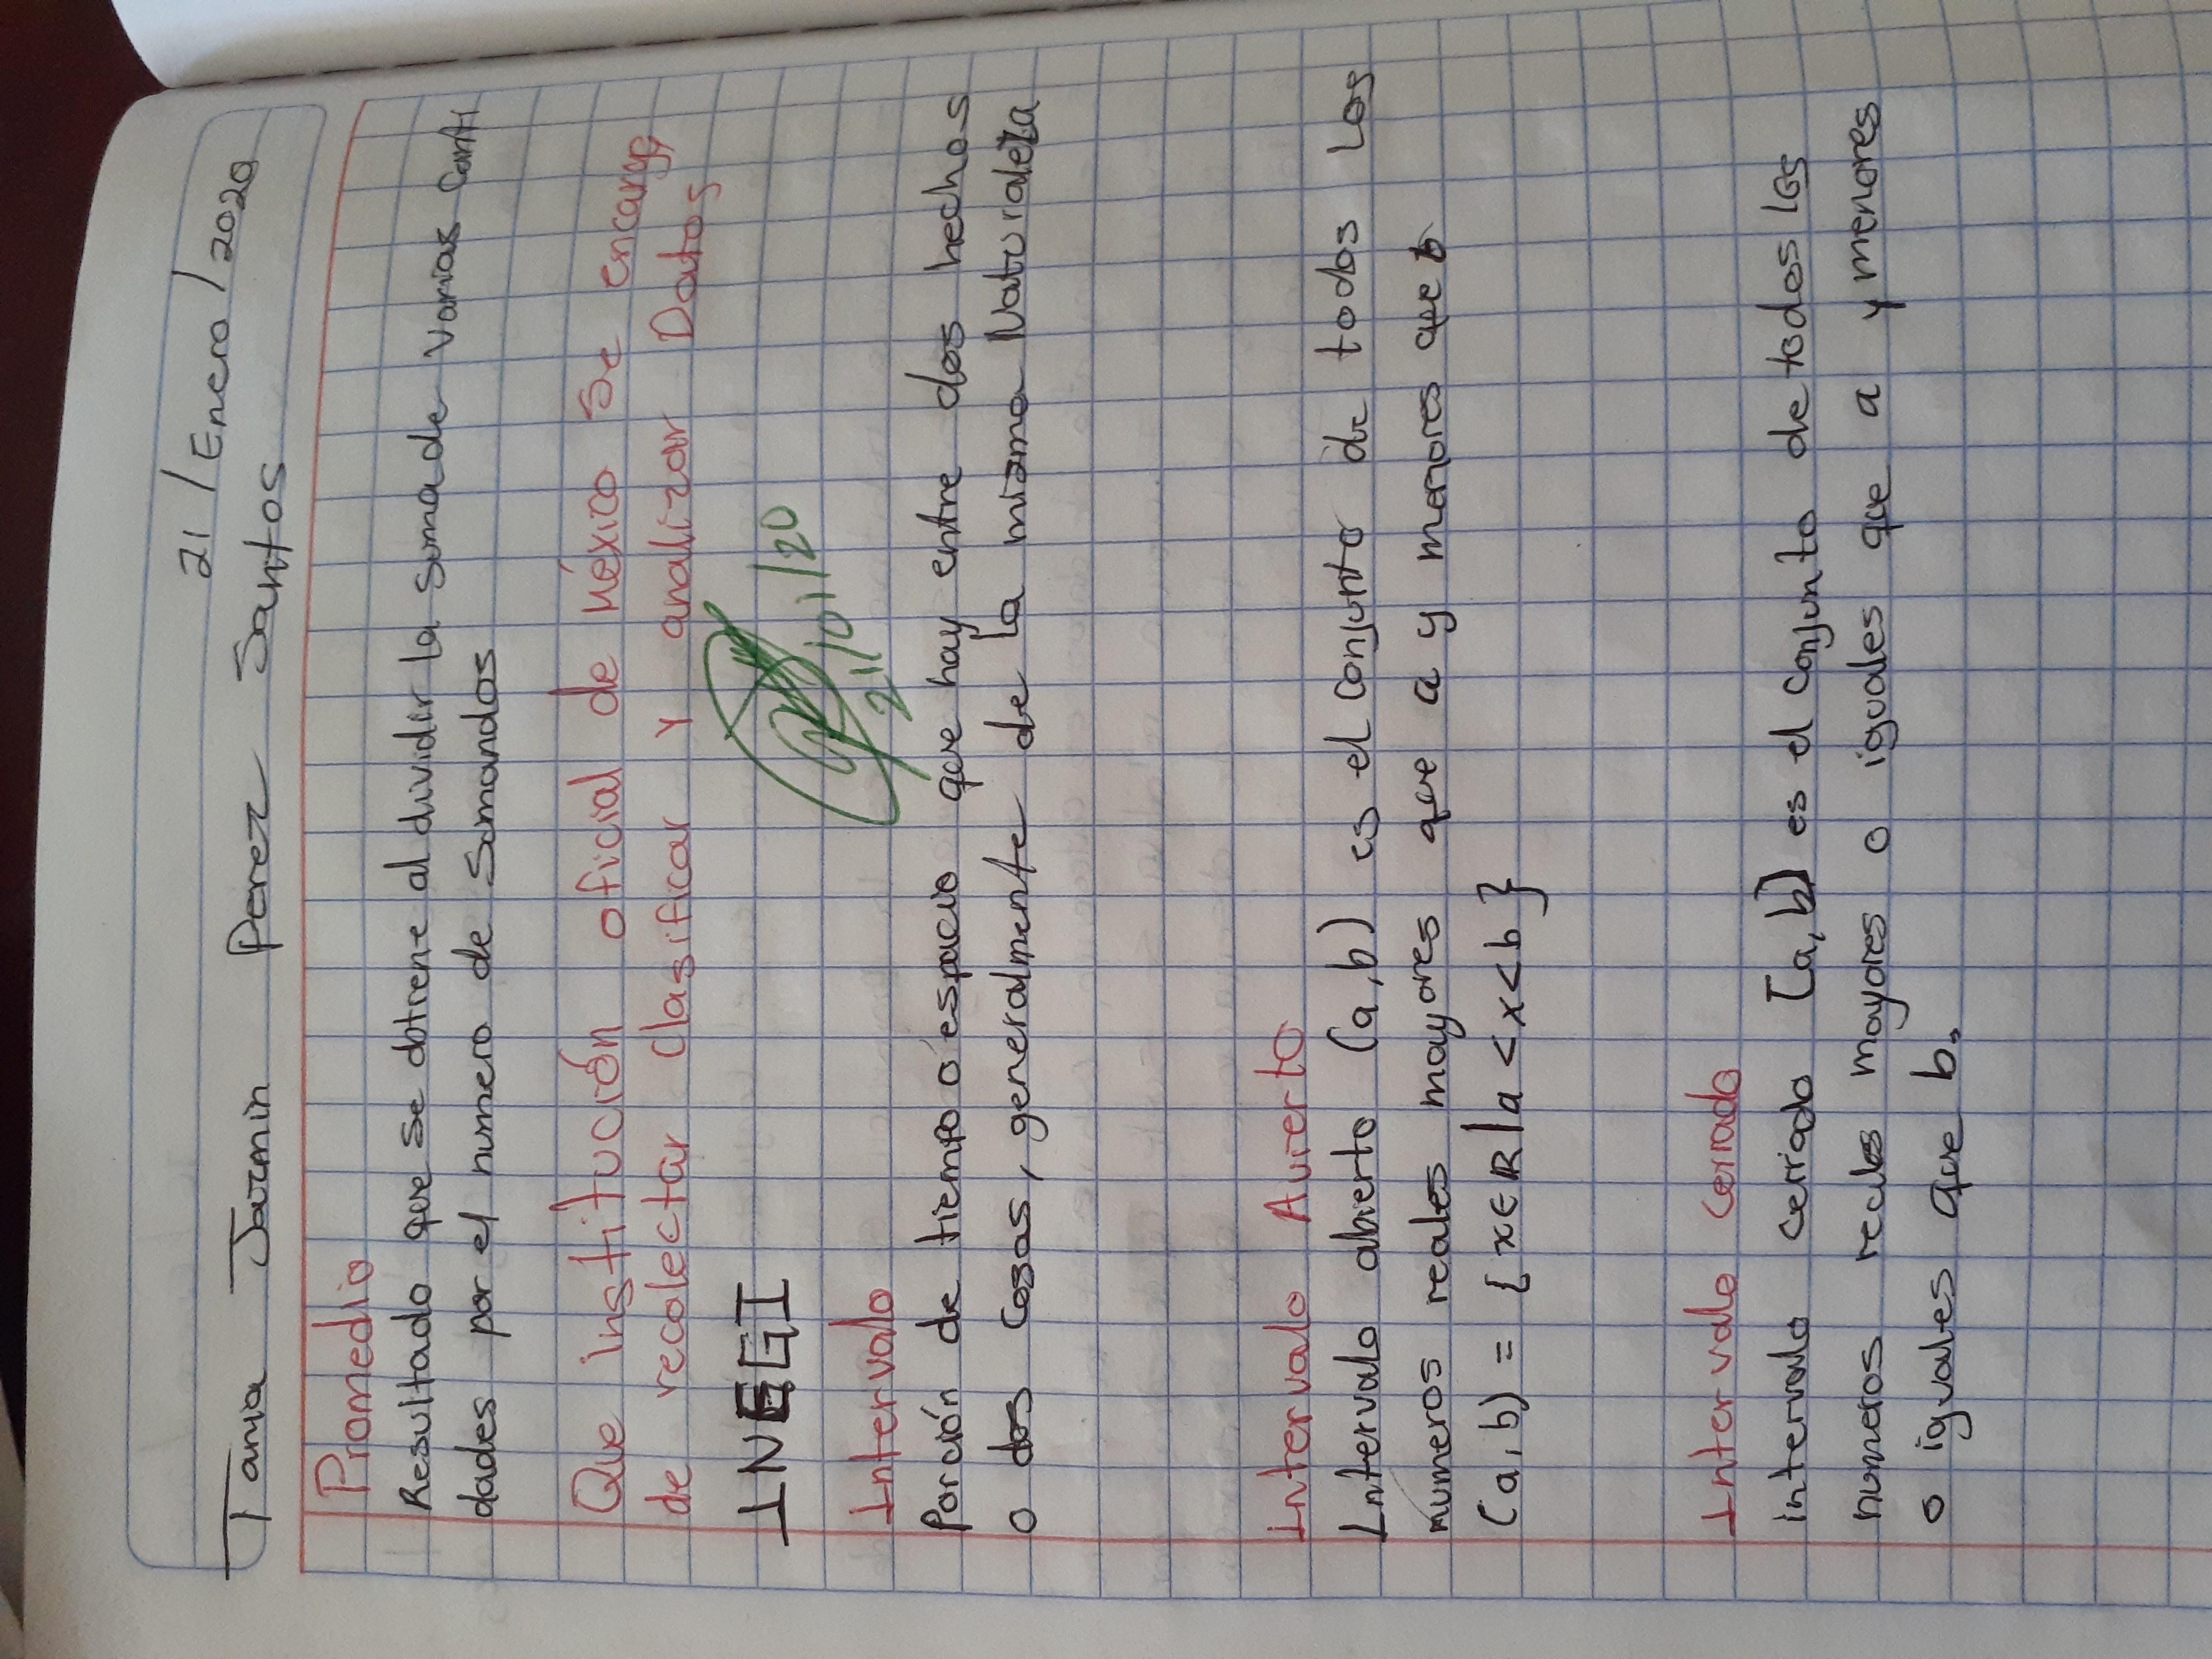 21/Enero/2020
Tania Jazmin Perez Santos
Promedio
Resultado que se obtiene al dividir la suma de varias canti
dades por el numero de sumandos
Que institución oficial de México se encarga
de recolectar clasificar y analizar Datos
INEGI
21/01/20
Intervalo
Porción de tiempo o espacio que hay entre dos hechos
o dos cosas, generalmente de la misma Naturaleza
Intervalo Avierto
Intervalo abierto (a,b) es el conjunto de todos los
numeros reales mayores que a y menores que b
(a,b) = {x∈ℝ|a<x<b}
Intervalo cerrado
intervalo cerrado [a,b] es el conjunto de todos los
numeros reales mayores o iguales que a y menores
o iguales que b.